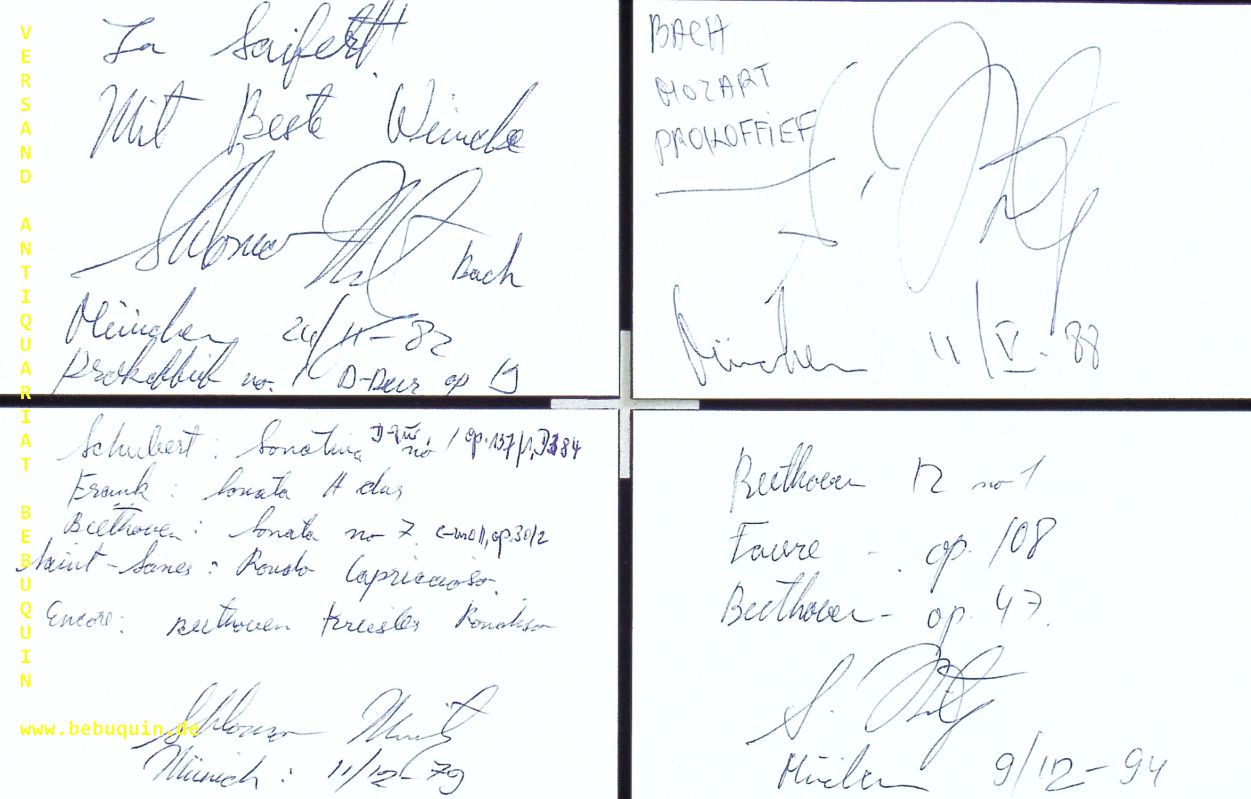 VERSAND ANTIQUARIAT BEBUQUIN
www.bebuquin.de
Seifert!
Mit Beste Wünche
Shlomo Mintz
Bach
München 24/11-82
Prokoffief no. 1 D-Dur op 19
BACH
MOZART
PROKOFFIEF
S. Mintz
München 11/V-88
Schubert: Sonatina D-Dur, no 1 op.137/1, D384
Frank: Sonata A dur
Beethoven: Sonata no 7. c-moll, op.30/2
Saint-Saens: Rondo Capriccioso.
Encore: Beethoven Kreisler Rondino
Shlomo Mintz
Münich: 11/12-79
Beethoven 12 no 1
Faure - op. 108
Beethoven - op. 47.
S. Mintz
München 9/12-94